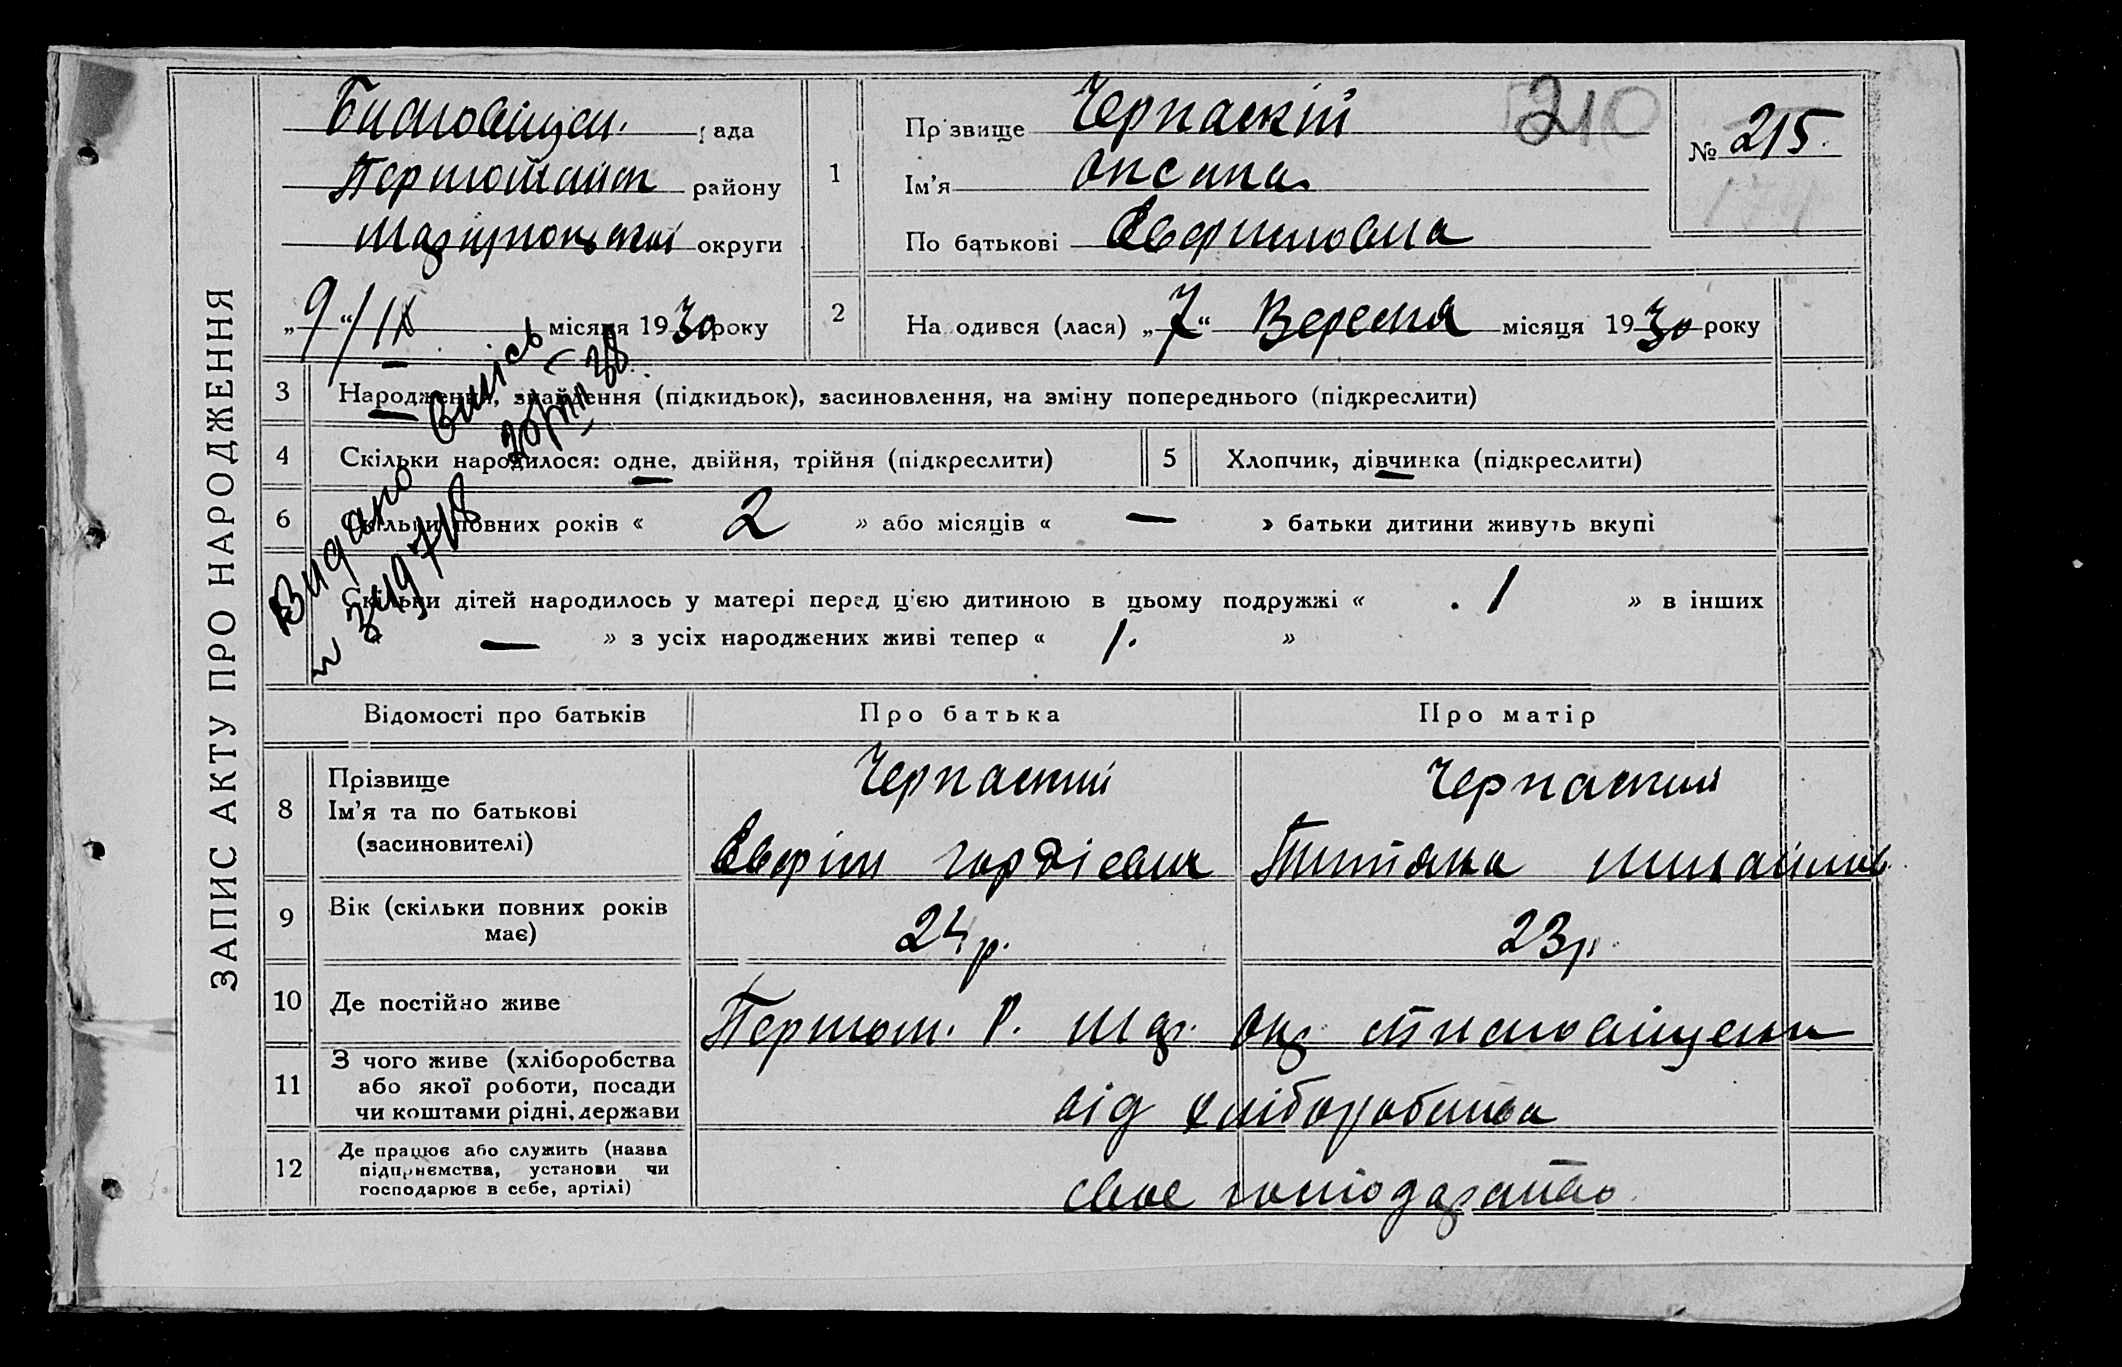 ЗАПИС АКТУ ПРО НАРОДЖЕННЯ
рада
району
округи
„9“/IX місяця 1930 року
1
Прізвище Черпаскій
Ім’я Оксана
По батькові
210
№ 215.
174
2
Народився (лася) „7“ Вересня місяця 1930 року
3 Народження, знайдення (підкидьок), засиновлення, на зміну попереднього (підкреслити)
4 Скільки народилося: одне, двійня, трійня (підкреслити)
5 Хлопчик, дівчинка (підкреслити)
6 Скільки повних років « 2 » або місяців « — » батьки дитини живуть вкупі
Скільки дітей народилось у матері перед ц’єю дитиною в цьому подружжі « 1 » в інших
— » з усіх народжених живі тепер « 1. »
Видано
Відомості про батьків Про батька Про матір
8 Прізвище
Ім’я та по батькові
(засиновителі)
Черпаский
Гордієвич
Черпаския
9 Вік (скільки повних років
має)
24 р.
23 р.
10 Де постійно живе
11 З чого живе (хліборобства
або якої роботи, посади
чи коштами рідні, держави
від хліборобства
12 Де працює або служить (назва
підприємства, установи чи
господарює в себе, артілі)
своє господарство